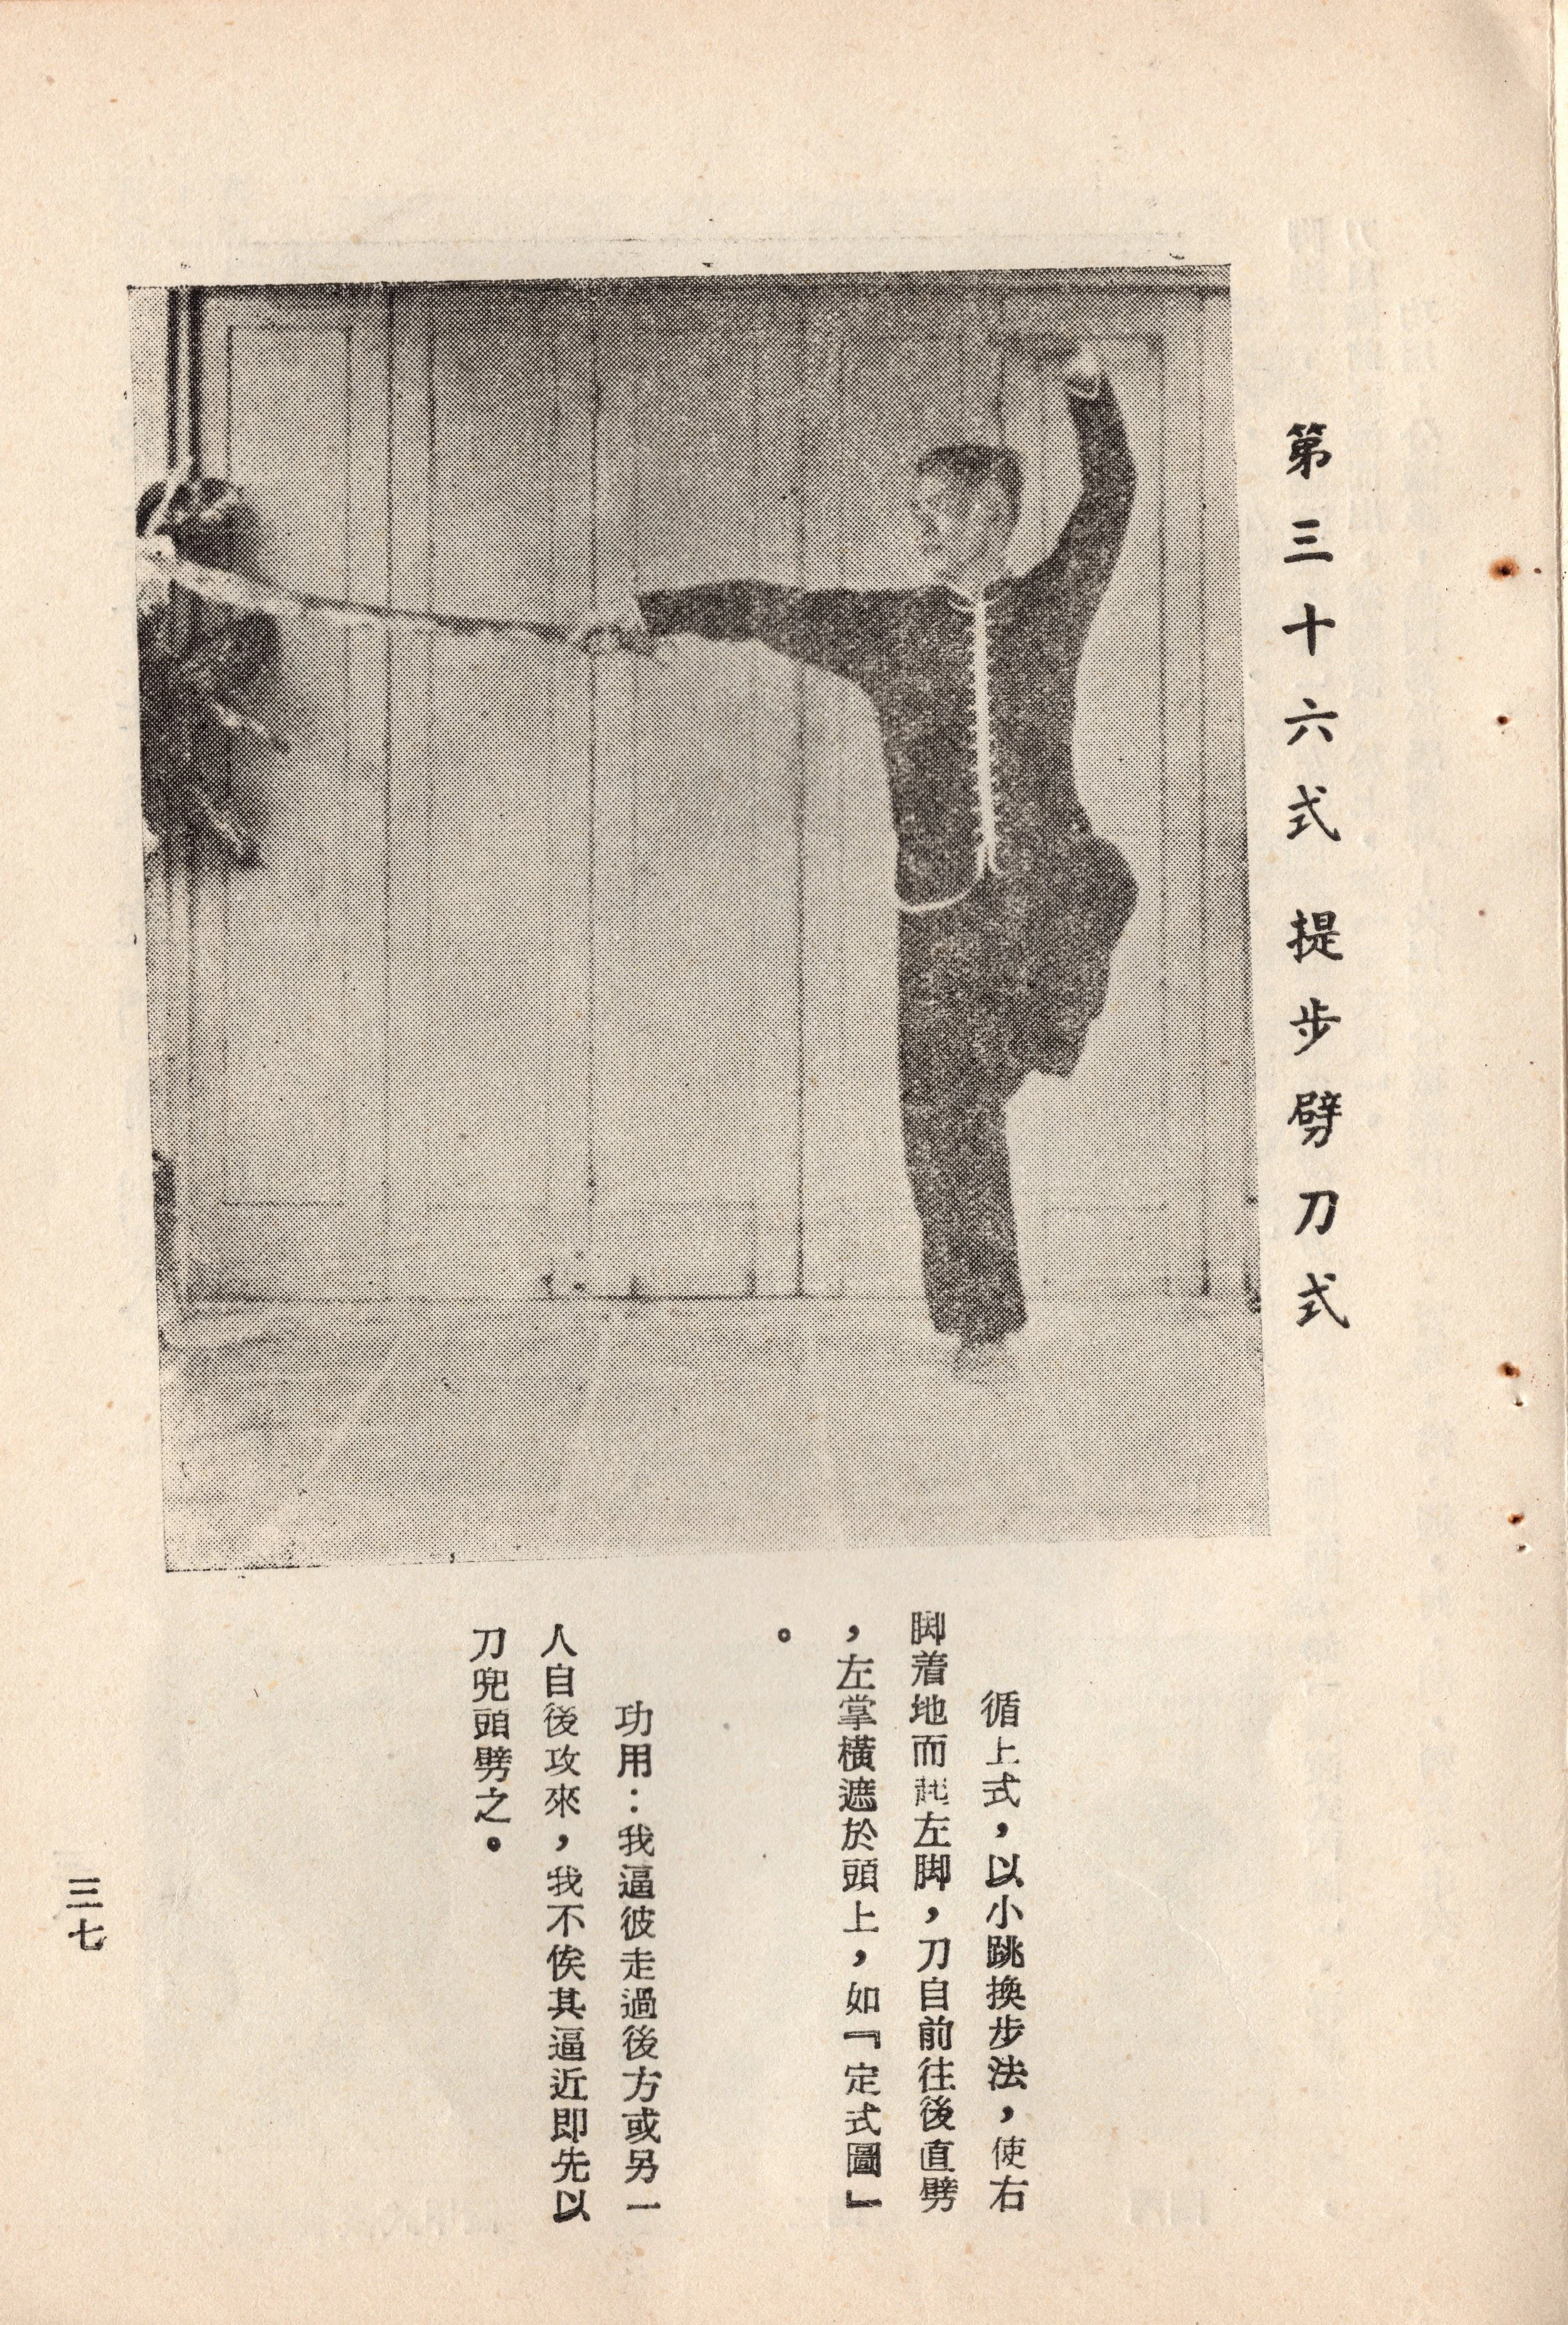 第三十六式 提步劈刀式
循上式，以小跳換步法，使右
脚着地而起左脚，刀自前往後直劈
，左掌橫遮於頭上，如『定式圖』
。
功用：我逼彼走過後方或另一
人自後攻來，我不俟其逼近即先以
刀兜頭劈之。
三七